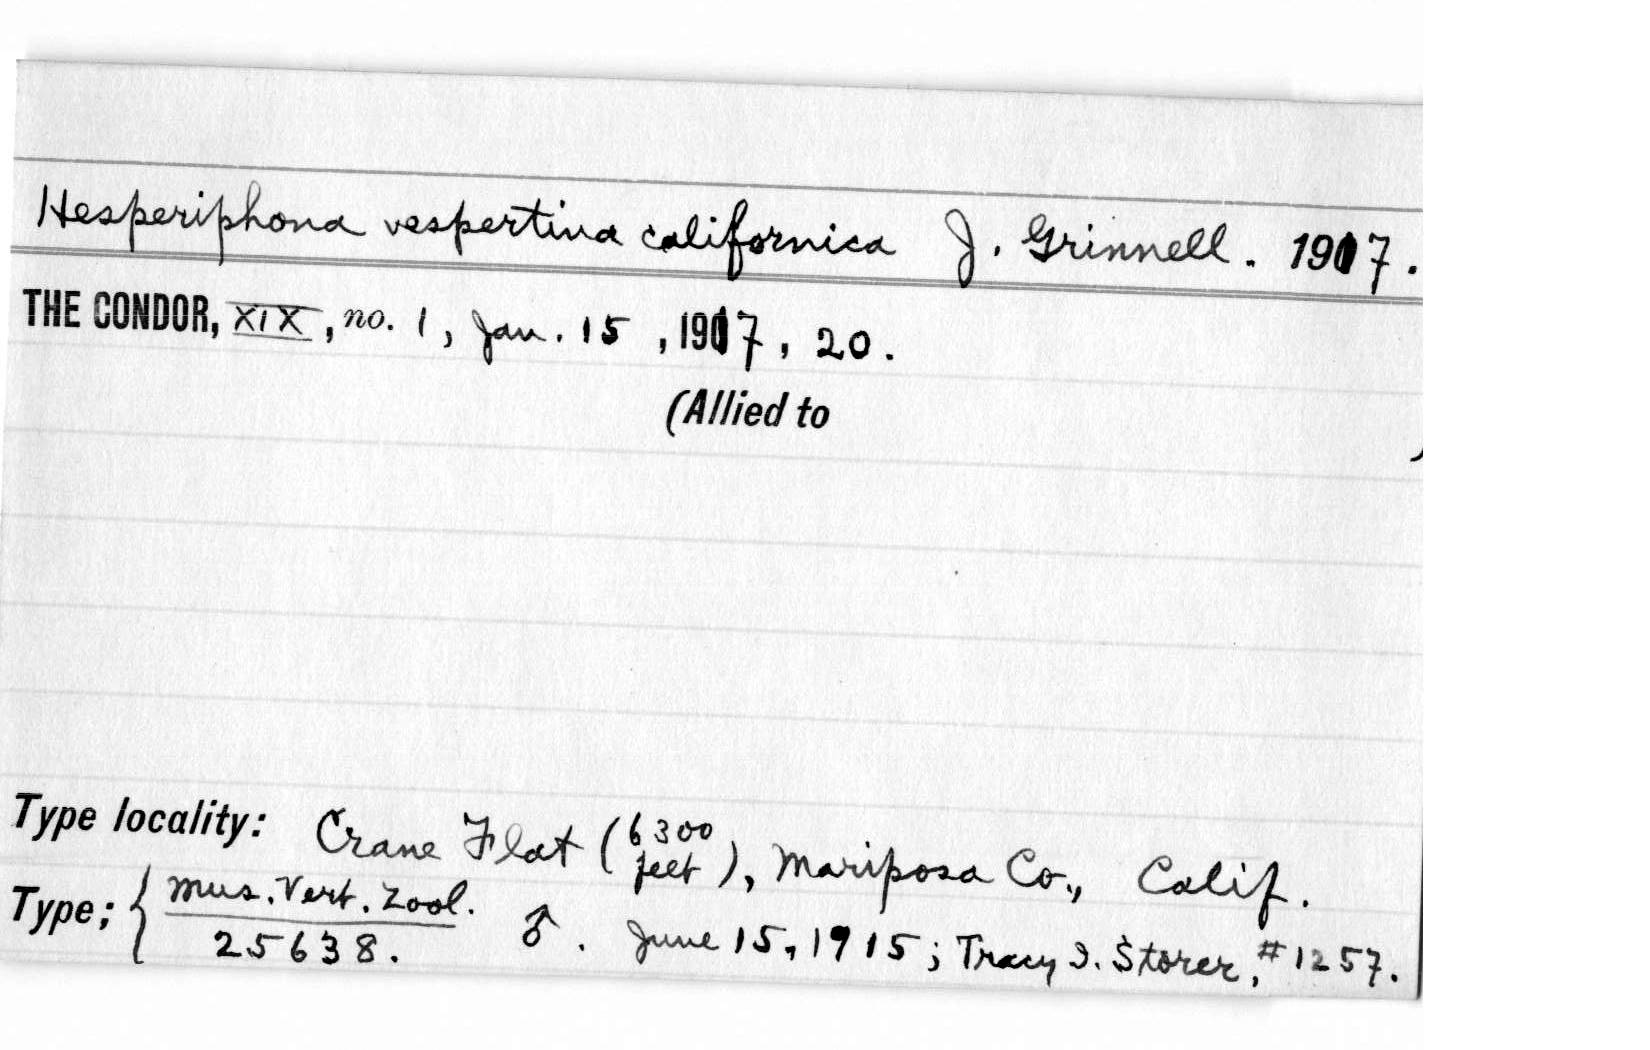 Hesperiphona vespertina californica J. Grinnell. 1917.
THE CONDOR, XIX, no. 1, Jan. 15, 1917, 20.
(Allied to )
Type locality: Crane Flat (6300 feet), Mariposa Co., Calif.
Type; { Mus. Vert. Zool. 25638. ♂. June 15, 1915; Tracy I. Storer, #1257.